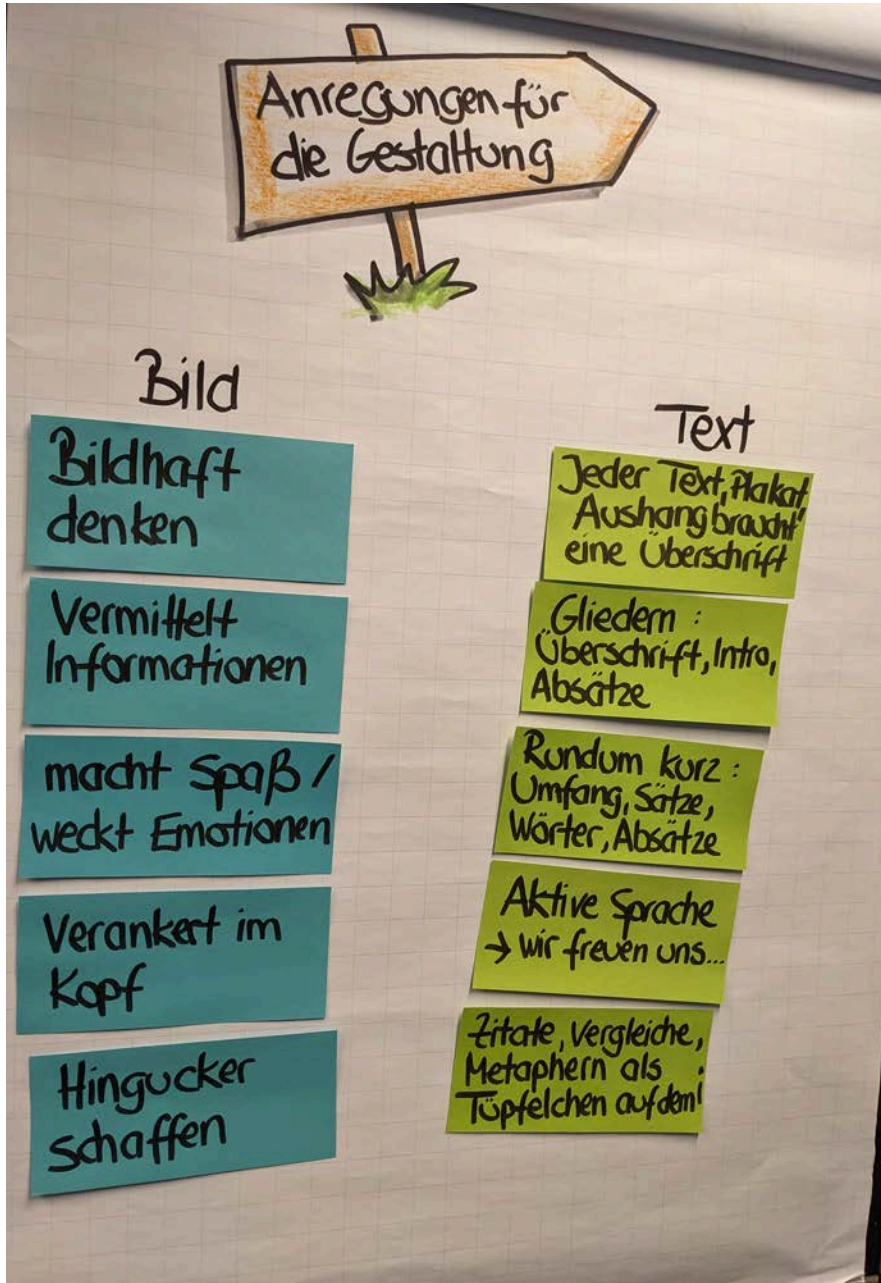 Anregungen für
die Gestaltung
Bild
Bildhaft
denken
Vermittelt
Informationen
macht Spaß /
weckt Emotionen
Verankert im
Kopf
Hingucker
schaffen
Text
Jeder Text, Plakat,
Aushang braucht
eine Überschrift
Gliedern :
Überschrift, Intro,
Absätze
Rundum kurz :
Umfang, Sätze,
Wörter, Absätze
Aktive Sprache
→ wir freuen uns...
Zitate, Vergleiche,
Metaphern als
Tüpfelchen auf dem i